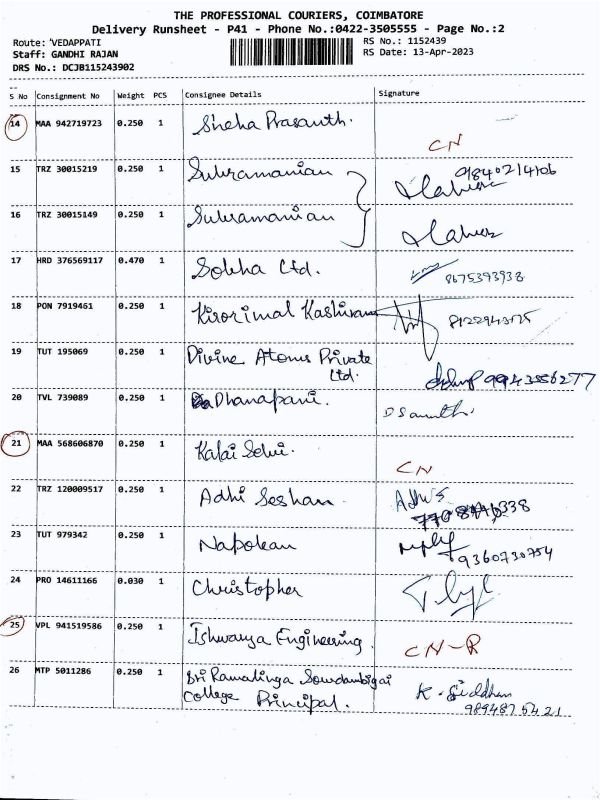 THE PROFESSIONAL COURIERS, COIMBATORE
Delivery Runsheet - P41 - Phone No.:0422-3505555 - Page No.:2
Route: 'VEDAPPATI
RS No.: 1152439
Staff: GANDHI RAJAN
RS Date: 13-Apr-2023
DRS No.: DCJB115243902
S No Consignment No Weight PCS Consignee Details Signature
14 MAA 942719723 0.250 1 Sneha Prasanth.
CN
15 TRZ 30015219 0.250 1 Subramanian 9840214106
16 TRZ 30015149 0.250 1 Subramanian
17 HRD 376569117 0.470 1 Sobha Ltd.
8675393938
18 PON 7919461 0.250 1 Kirorimal Kashiram
19 TUT 195069 0.250 1 Divine Atoms Private
Ltd.
20 TVL 739089 0.250 1 Dhanapani.
21 MAA 568606870 0.250 1 Kalai Selvi.
CN
22 TRZ 120009517 0.250 1 Adhi Seshan
23 TUT 979342 0.250 1 Napolean
9360730754
24 PRO 14611166 0.030 1 Christopher
25 VPL 941519586 0.250 1 Ishwarya Engineering.
CN-R
26 MTP 5011286 0.250 1 Sri Ramalinga Sowdambigai
College Principal. K. Siddhan
9894875421